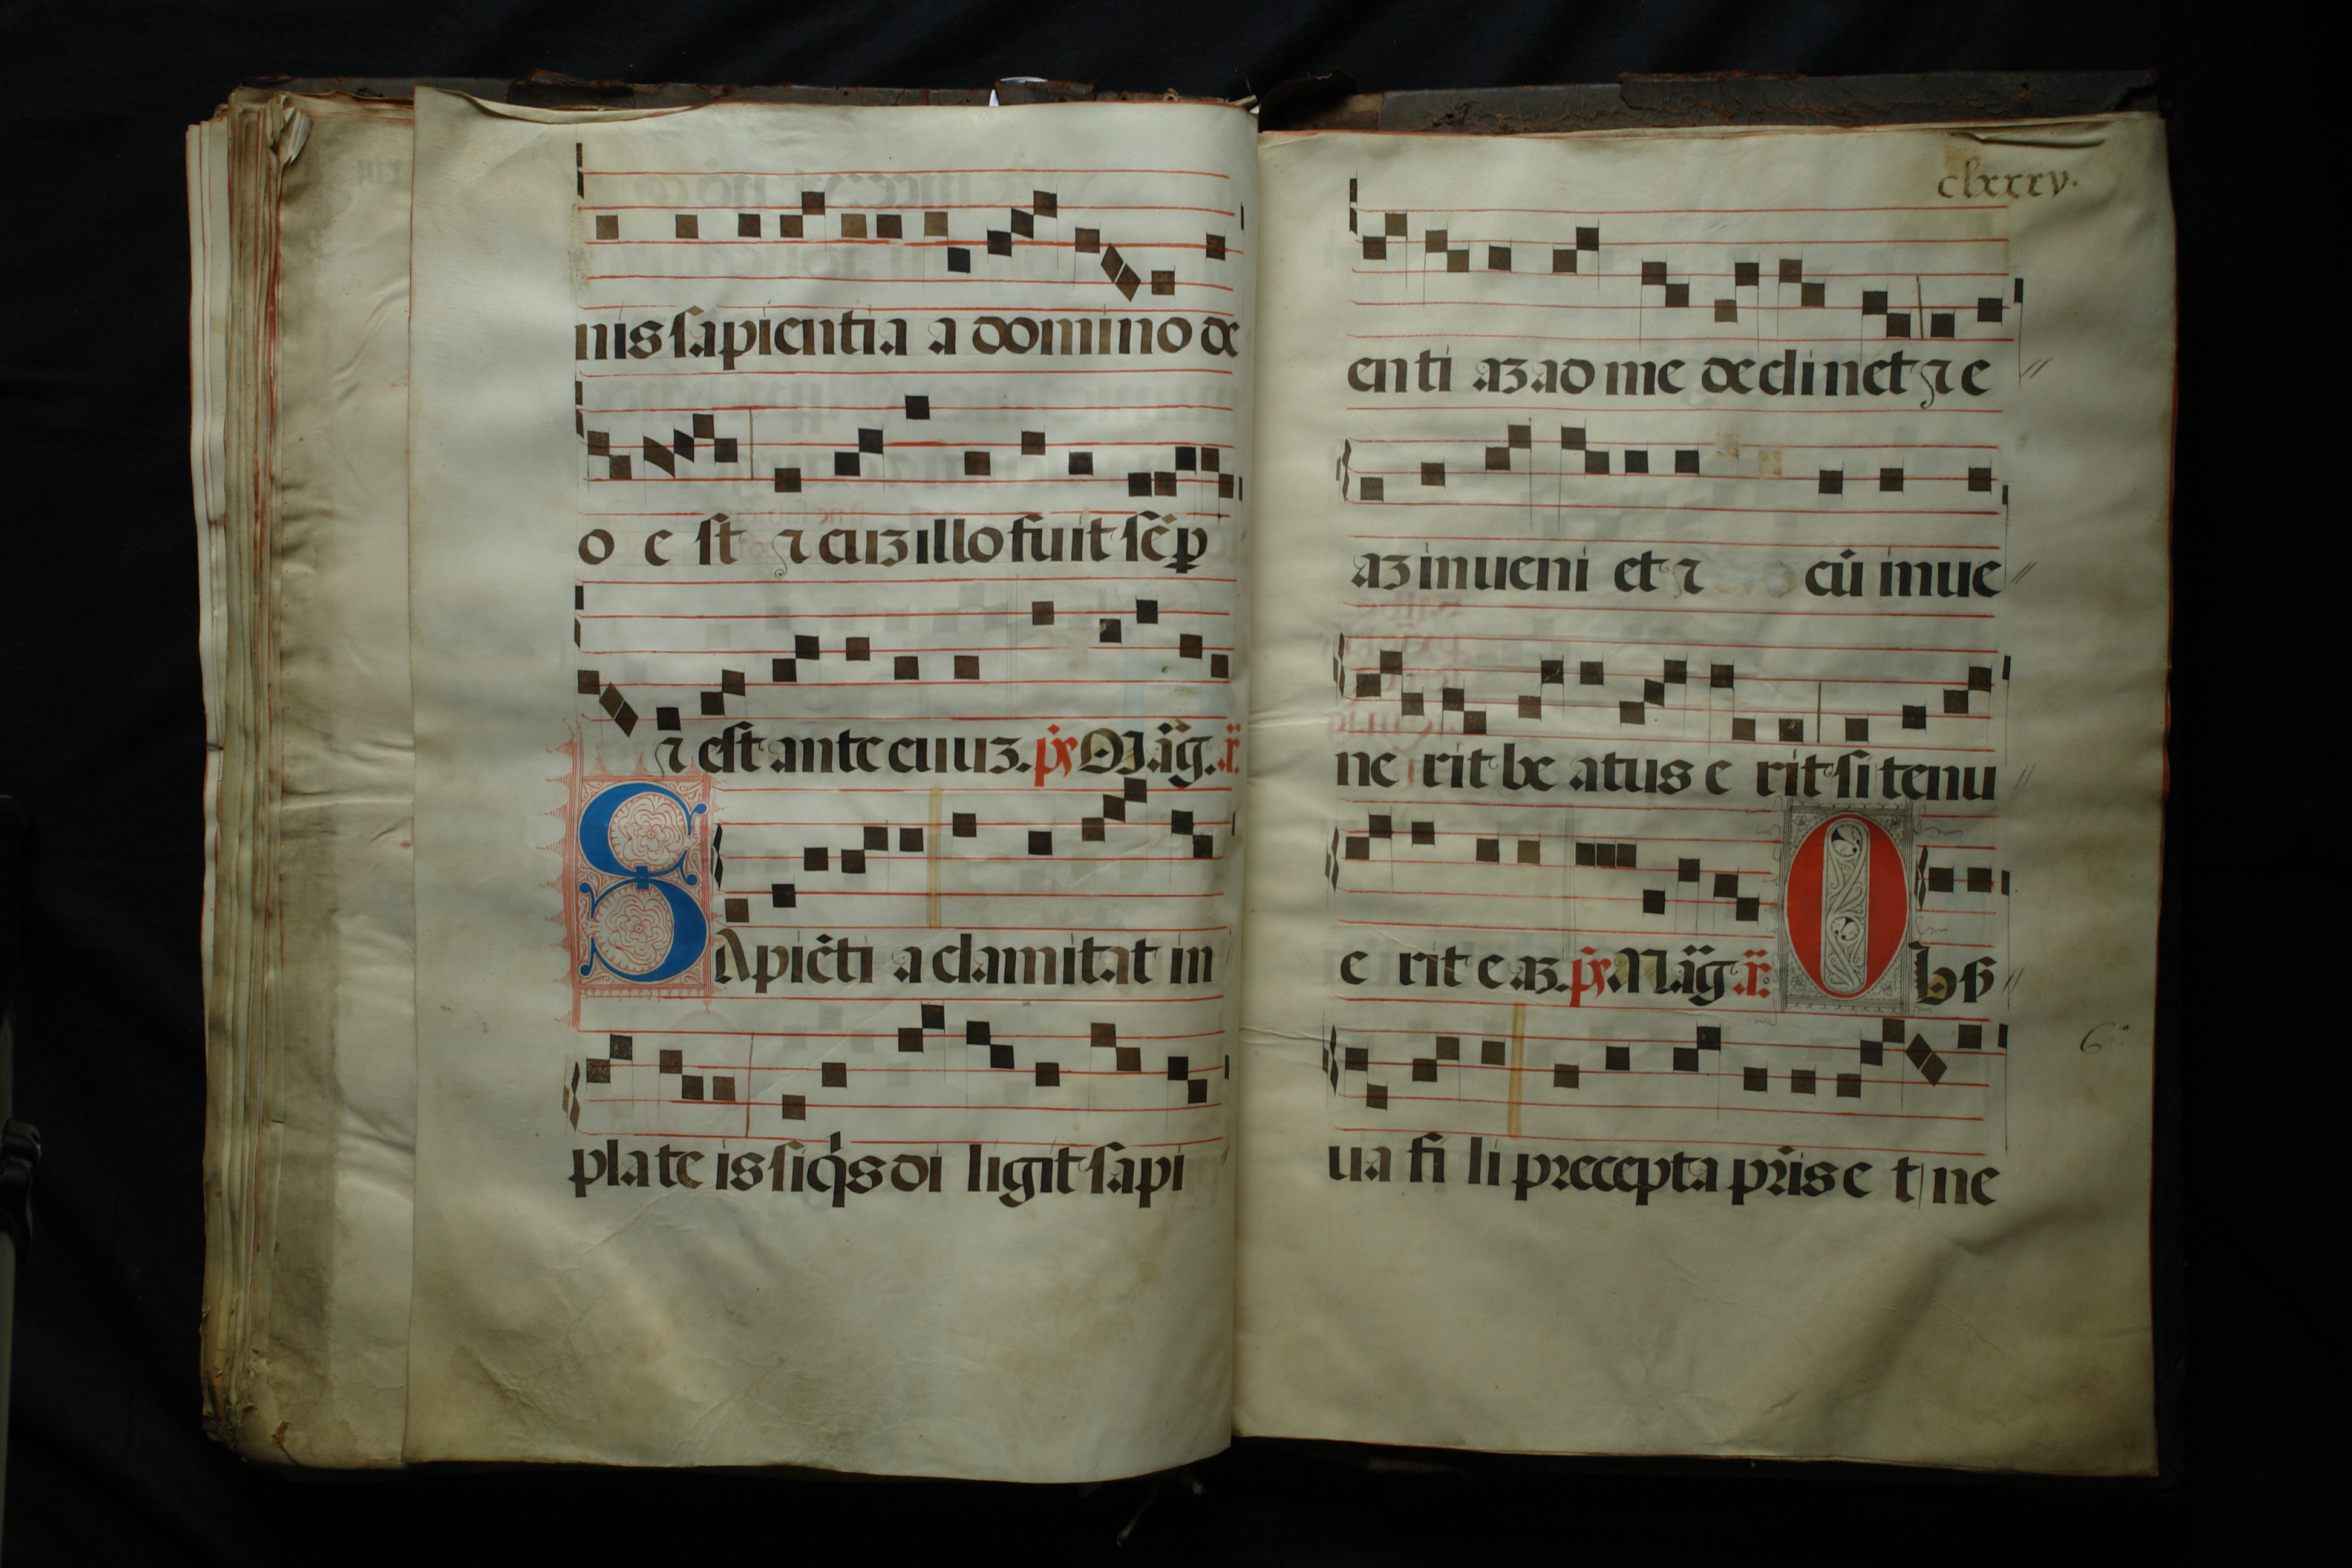 nis sapientia a domino de
o e st ⁊ cuꝫ illo fuit sēp
⁊ est ante euuꝫ. ps Mag. x.
SApiēti a clamitat in
pla te is si qs di ligit sapi
clxxxv.
en ti aꝫ ad me declinet ⁊ e
aꝫ inueni et ⁊ cū inue
ne rit be atus e rit si tenu
e rit e aꝫ. ps Mag x. Obẜ
6
ua fi li precepta pris e t ne